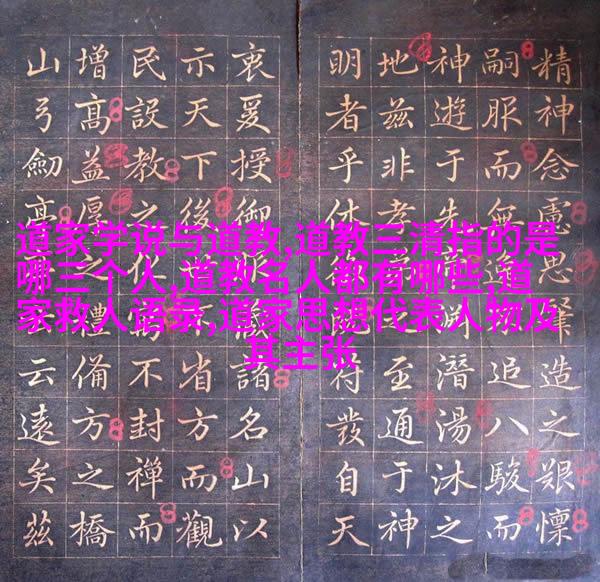 道家学说与道教,道教三清指的是
哪三个人,道教名人都有哪些,道
家救人语录,道家思想代表人物及
其主张
精神念慮思造之艱懍
嗣服而無追八駿而
神遊于先潛湯沐之
地茲非孝至通于神
明者乎休符發自天
衷爰授御諸名山以
示天下後世省方而觀
民設教之化不封禪而
增高益厚之禮備方之橋
山弓劍云遠矣茲